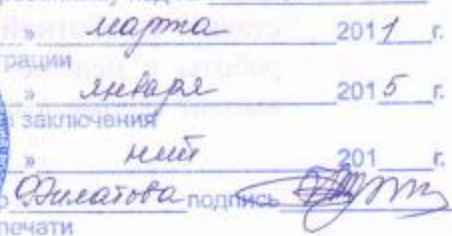 » марта 2011 г.
трации
» января 2015 г.
заключения
» нет 201 г.
Филатова подпись
печати